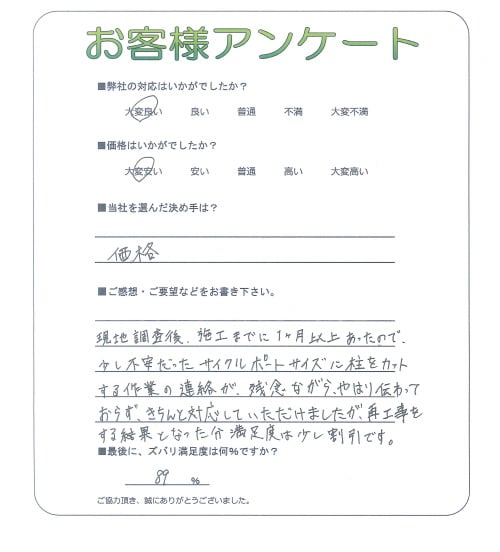 お客様アンケート
■弊社の対応はいかがでしたか？
大変良い 良い 普通 不満 大変不満
■価格はいかがでしたか？
大変安い 安い 普通 高い 大変高い
■当社を選んだ決め手は？
価格
■ご感想・ご要望などをお書き下さい。
現地調査後、施工までに1ヶ月以上あったので、
少し不安だったサイクルポートサイズに柱をカット
する作業の連絡が、残念ながら、やはり伝わって
おらず、きちんと対応していただけましたが、再工事を
する結果となった分満足度は少し割引です。
■最後に、ズバリ満足度は何%ですか？
89 %
ご協力頂き、誠にありがとうございました。